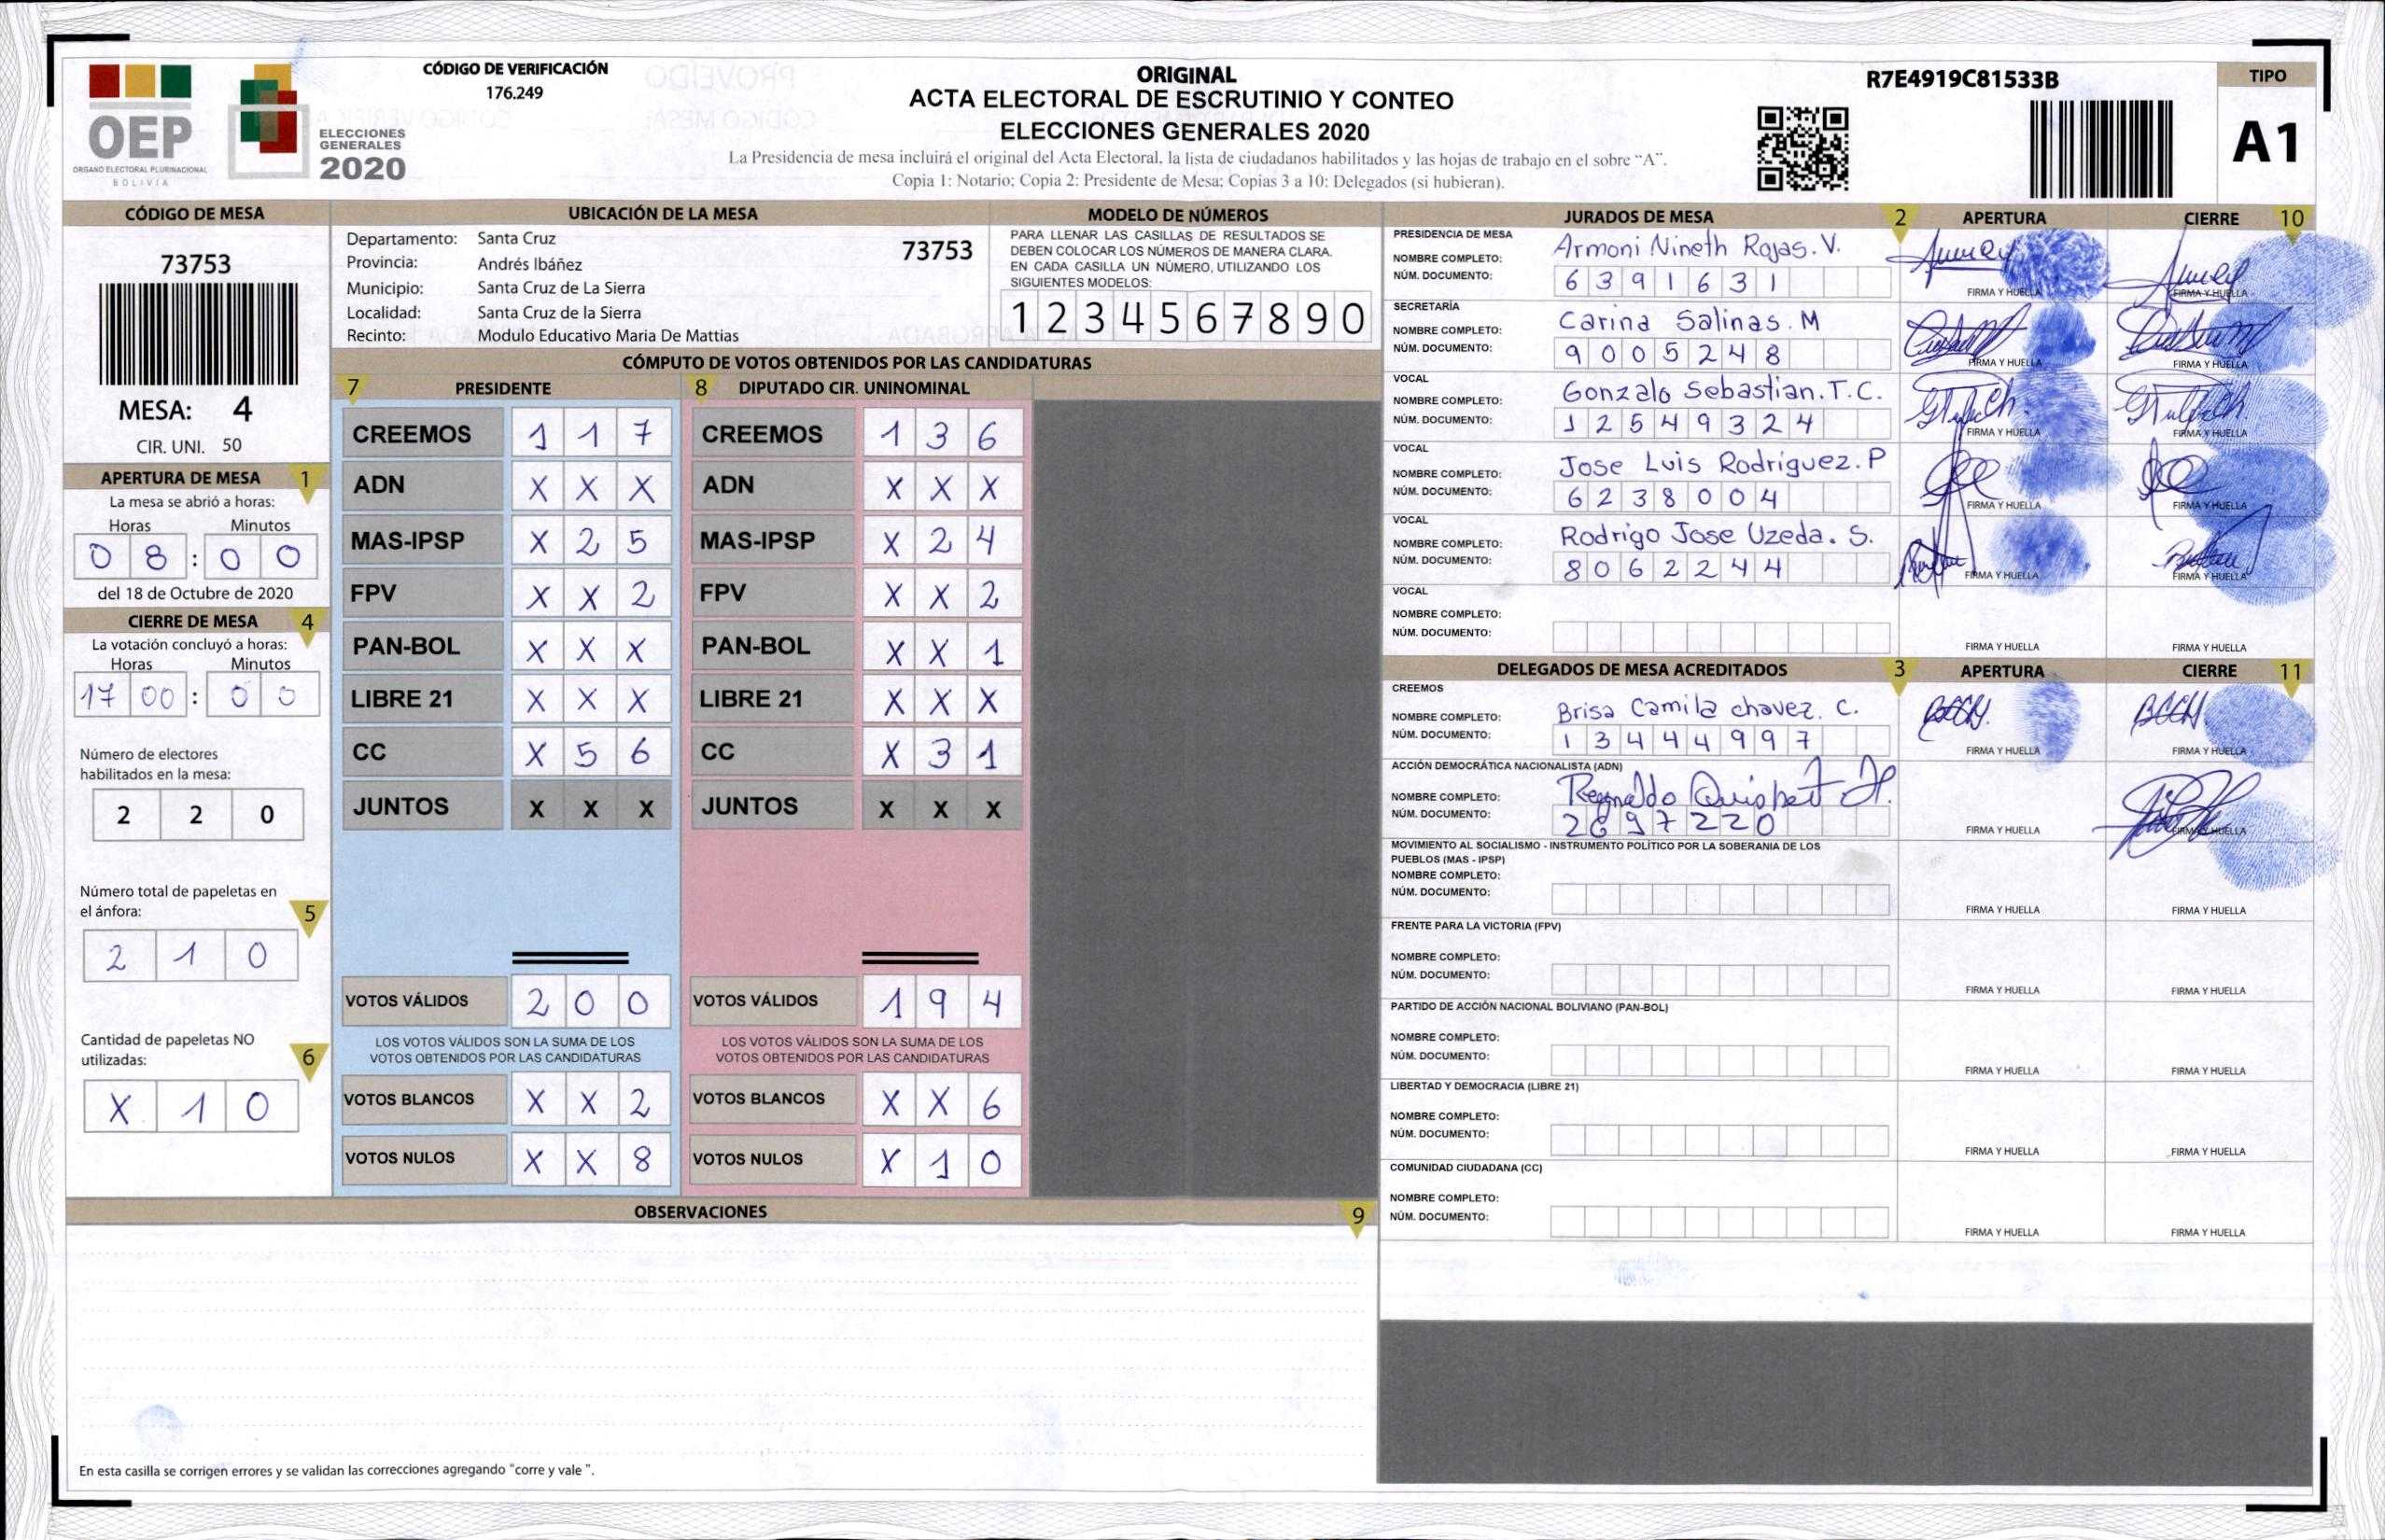 OEP
ORGANO ELECTORAL PLURINACIONAL
BOLIVIA
ELECCIONES
GENERALES
2020
CÓDIGO DE VERIFICACIÓN
176.249
ORIGINAL
ACTA ELECTORAL DE ESCRUTINIO Y CONTEO
ELECCIONES GENERALES 2020
La Presidencia de mesa incluirá el original del Acta Electoral, la lista de ciudadanos habilitados y las hojas de trabajo en el sobre "A".
Copia 1: Notario; Copia 2: Presidente de Mesa; Copias 3 a 10: Delegados (si hubieran).
R7E4919C81533B
TIPO
A1
CÓDIGO DE MESA
73753
MESA: 4
CIR. UNI. 50
APERTURA DE MESA 1
La mesa se abrió a horas:
Horas Minutos
0 8 : 0 0
del 18 de Octubre de 2020
CIERRE DE MESA 4
La votación concluyó a horas:
Horas Minutos
17 00 : 0 0
Número de electores
habilitados en la mesa:
2 2 0
Número total de papeletas en
el ánfora: 5
2 1 0
Cantidad de papeletas NO
utilizadas: 6
X 1 0
UBICACIÓN DE LA MESA
Departamento: Santa Cruz 73753
Provincia: Andrés Ibáñez
Municipio: Santa Cruz de La Sierra
Localidad: Santa Cruz de la Sierra
Recinto: Modulo Educativo Maria De Mattias
MODELO DE NÚMEROS
PARA LLENAR LAS CASILLAS DE RESULTADOS SE
DEBEN COLOCAR LOS NÚMEROS DE MANERA CLARA.
EN CADA CASILLA UN NÚMERO, UTILIZANDO LOS
SIGUIENTES MODELOS:
1 2 3 4 5 6 7 8 9 0
CÓMPUTO DE VOTOS OBTENIDOS POR LAS CANDIDATURAS
7 PRESIDENTE 8 DIPUTADO CIR. UNINOMINAL
CREEMOS 1 1 7 CREEMOS 1 3 6
ADN X X X ADN X X X
MAS-IPSP X 2 5 MAS-IPSP X 2 4
FPV X X 2 FPV X X 2
PAN-BOL X X X PAN-BOL X X 1
LIBRE 21 X X X LIBRE 21 X X X
CC X 5 6 CC X 3 1
JUNTOS X X X JUNTOS X X X
VOTOS VÁLIDOS 2 0 0 VOTOS VÁLIDOS 1 9 4
LOS VOTOS VÁLIDOS SON LA SUMA DE LOS LOS VOTOS VÁLIDOS SON LA SUMA DE LOS
VOTOS OBTENIDOS POR LAS CANDIDATURAS VOTOS OBTENIDOS POR LAS CANDIDATURAS
VOTOS BLANCOS X X 2 VOTOS BLANCOS X X 6
VOTOS NULOS X X 8 VOTOS NULOS X 1 0
OBSERVACIONES 9
En esta casilla se corrigen errores y se validan las correcciones agregando "corre y vale ".
JURADOS DE MESA 2 APERTURA CIERRE 10
PRESIDENCIA DE MESA
NOMBRE COMPLETO: Armoni Nineth Rojas. V.
NÚM. DOCUMENTO: 6 3 9 1 6 3 1
FIRMA Y HUELLA FIRMA Y HUELLA
SECRETARÍA
NOMBRE COMPLETO: Carina Salinas. M
NÚM. DOCUMENTO: 9 0 0 5 2 4 8
FIRMA Y HUELLA FIRMA Y HUELLA
VOCAL
NOMBRE COMPLETO: Gonzalo Sebastian. T. C.
NÚM. DOCUMENTO: 1 2 5 4 9 3 2 4
FIRMA Y HUELLA FIRMA Y HUELLA
VOCAL
NOMBRE COMPLETO: Jose Luis Rodríguez. P
NÚM. DOCUMENTO: 6 2 3 8 0 0 4
FIRMA Y HUELLA FIRMA Y HUELLA
VOCAL
NOMBRE COMPLETO: Rodrigo Jose Uzeda. S.
NÚM. DOCUMENTO: 8 0 6 2 2 4 4
FIRMA Y HUELLA FIRMA Y HUELLA
VOCAL
NOMBRE COMPLETO:
NÚM. DOCUMENTO:
FIRMA Y HUELLA FIRMA Y HUELLA
DELEGADOS DE MESA ACREDITADOS 3 APERTURA CIERRE 11
CREEMOS
NOMBRE COMPLETO: Brisa Camila chavez. C.
NÚM. DOCUMENTO: 1 3 4 4 4 9 9 7
FIRMA Y HUELLA FIRMA Y HUELLA
ACCIÓN DEMOCRÁTICA NACIONALISTA (ADN)
NOMBRE COMPLETO:
NÚM. DOCUMENTO: 2 6 9 7 2 2 0
FIRMA Y HUELLA FIRMA Y HUELLA
MOVIMIENTO AL SOCIALISMO - INSTRUMENTO POLÍTICO POR LA SOBERANIA DE LOS
PUEBLOS (MAS - IPSP)
NOMBRE COMPLETO:
NÚM. DOCUMENTO:
FIRMA Y HUELLA FIRMA Y HUELLA
FRENTE PARA LA VICTORIA (FPV)
NOMBRE COMPLETO:
NÚM. DOCUMENTO:
FIRMA Y HUELLA FIRMA Y HUELLA
PARTIDO DE ACCIÓN NACIONAL BOLIVIANO (PAN-BOL)
NOMBRE COMPLETO:
NÚM. DOCUMENTO:
FIRMA Y HUELLA FIRMA Y HUELLA
LIBERTAD Y DEMOCRACIA (LIBRE 21)
NOMBRE COMPLETO:
NÚM. DOCUMENTO:
FIRMA Y HUELLA FIRMA Y HUELLA
COMUNIDAD CIUDADANA (CC)
NOMBRE COMPLETO:
NÚM. DOCUMENTO:
FIRMA Y HUELLA FIRMA Y HUELLA